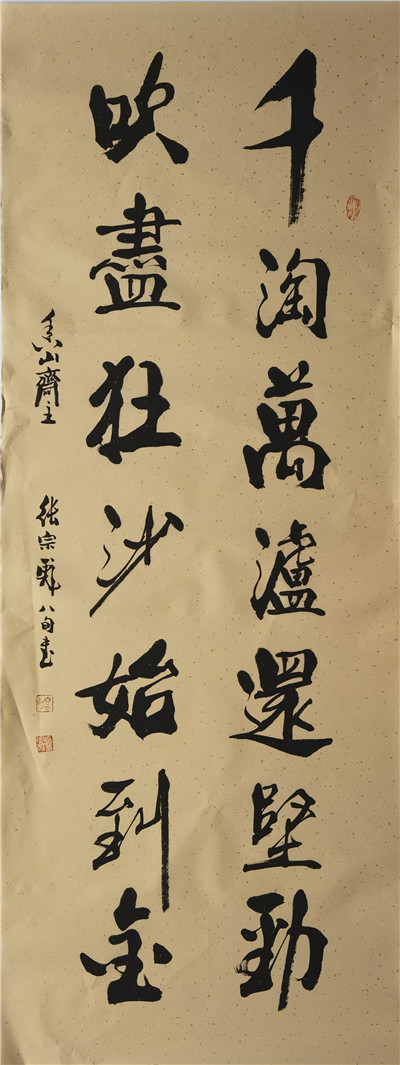 千淘萬瀘還堅勁
吹盡狂沙始到金
香山齋主
張宗 八旬書